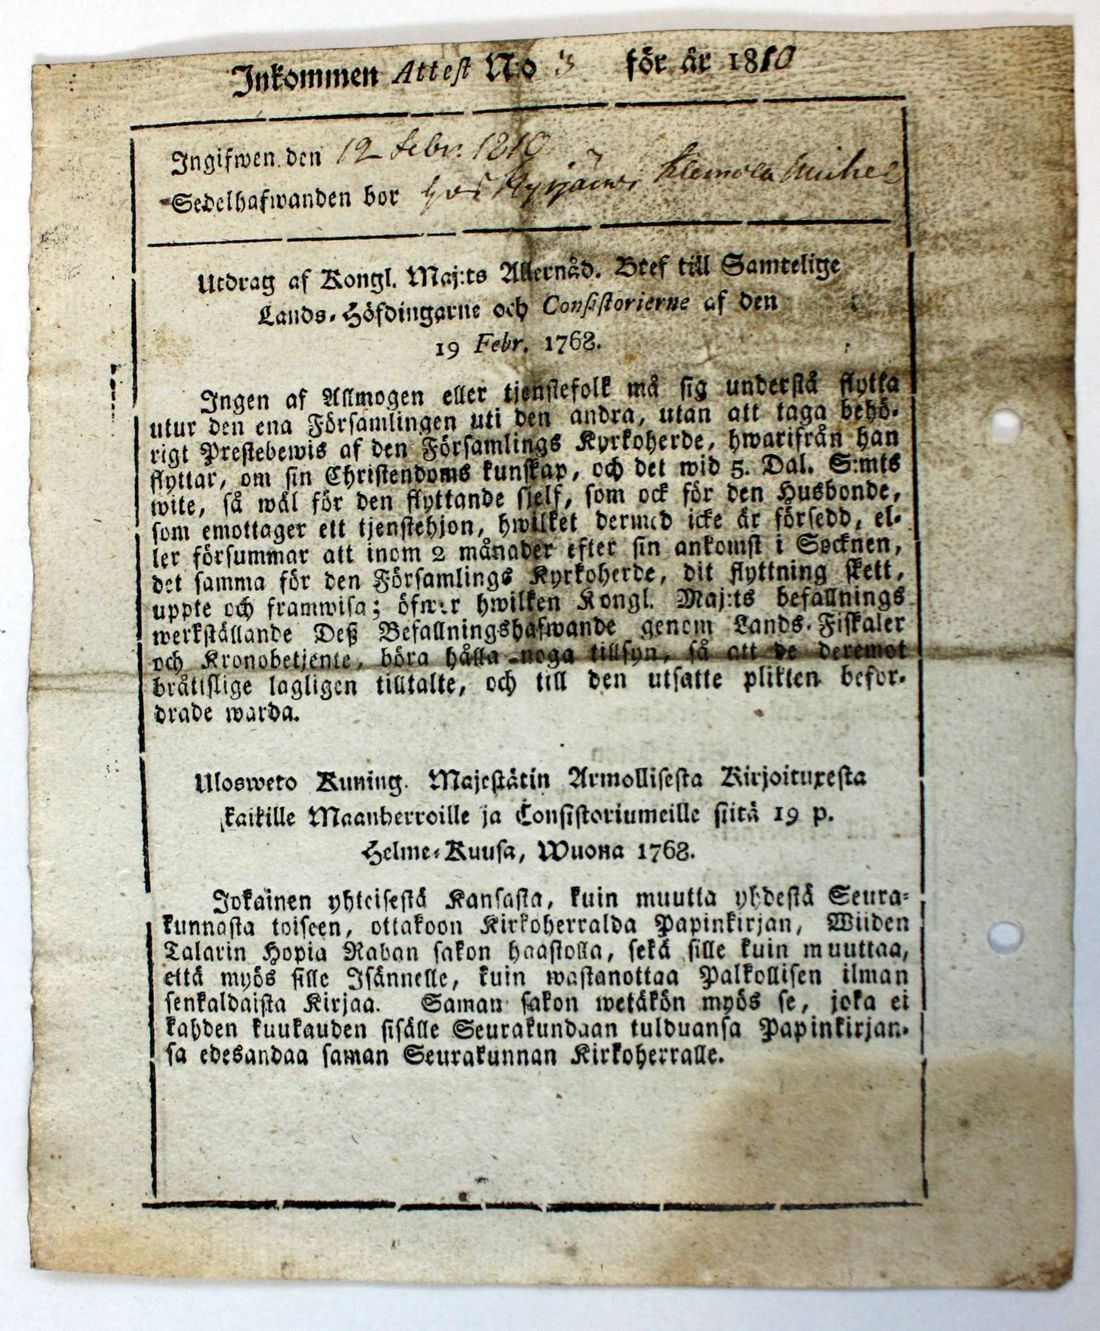 Inkommen Attest No 3 för år 1810
Ingifwen den 12 Febr. 1810
Sedelhafwanden bor hos Klemola Michel
Utdrag af Kongl. Maj:ts Allernåd. Bref till Samtelige
Lands-Höfdingarne och Consistorierne af den
19 Febr. 1768.
Ingen af Allmogen eller tjenstefolk må sig understå flytta
utur den ena Församlingen uti den andra, utan att taga behö-
rigt Prestebewis af den Församlings Kyrkoherde, hwarifrån han
flyttar, om sin Christendoms kunskap, och det wid 5. Dal. S:mts
wite, så wäl för den flyttande sjelf, som ock för den Husbonde,
som emottager ett tjenstehjon, hwilket dermed icke är försedd, el-
ler försummar att inom 2 månader efter sin ankomst i Socknen,
det samma för den Församlings Kyrkoherde, dit flyttning skett,
uppte och framwisa; öfwer hwilken Kongl. Maj:ts befallnings
werkställande Deß Befallningshafwande genom Lands-Fiskaler
och Kronobetjente, böra hålla noga tillsyn, så att de deremot
bråtislige lagligen tilltalte, och till den utsatte plikten befor-
drade warda.
Ulosweto Kuning. Majestätin Armollisesta Kirjoituxesta
kaikille Maanherroille ja Consistoriumeille siitä 19 p.
Helme-Kuusa, Wuona 1768.
Jokainen yhteisestä Kansasta, kuin muutta yhdestä Seura-
kunnasta toiseen, ottakoon Kirkoherralda Papinkirjan, Wiiden
Talarin Hopia Rahan sakon haastolla, sekä sille kuin muuttaa,
että myös sille Isännelle, kuin wastanottaa Palkollisen ilman
senkaldaista Kirjaa. Saman sakon wetäkön myös se, joka ei
kahden kuukauden sisälle Seurakundaan tulduansa Papinkirjan-
sa edesandaa saman Seurakunnan Kirkoherralle.